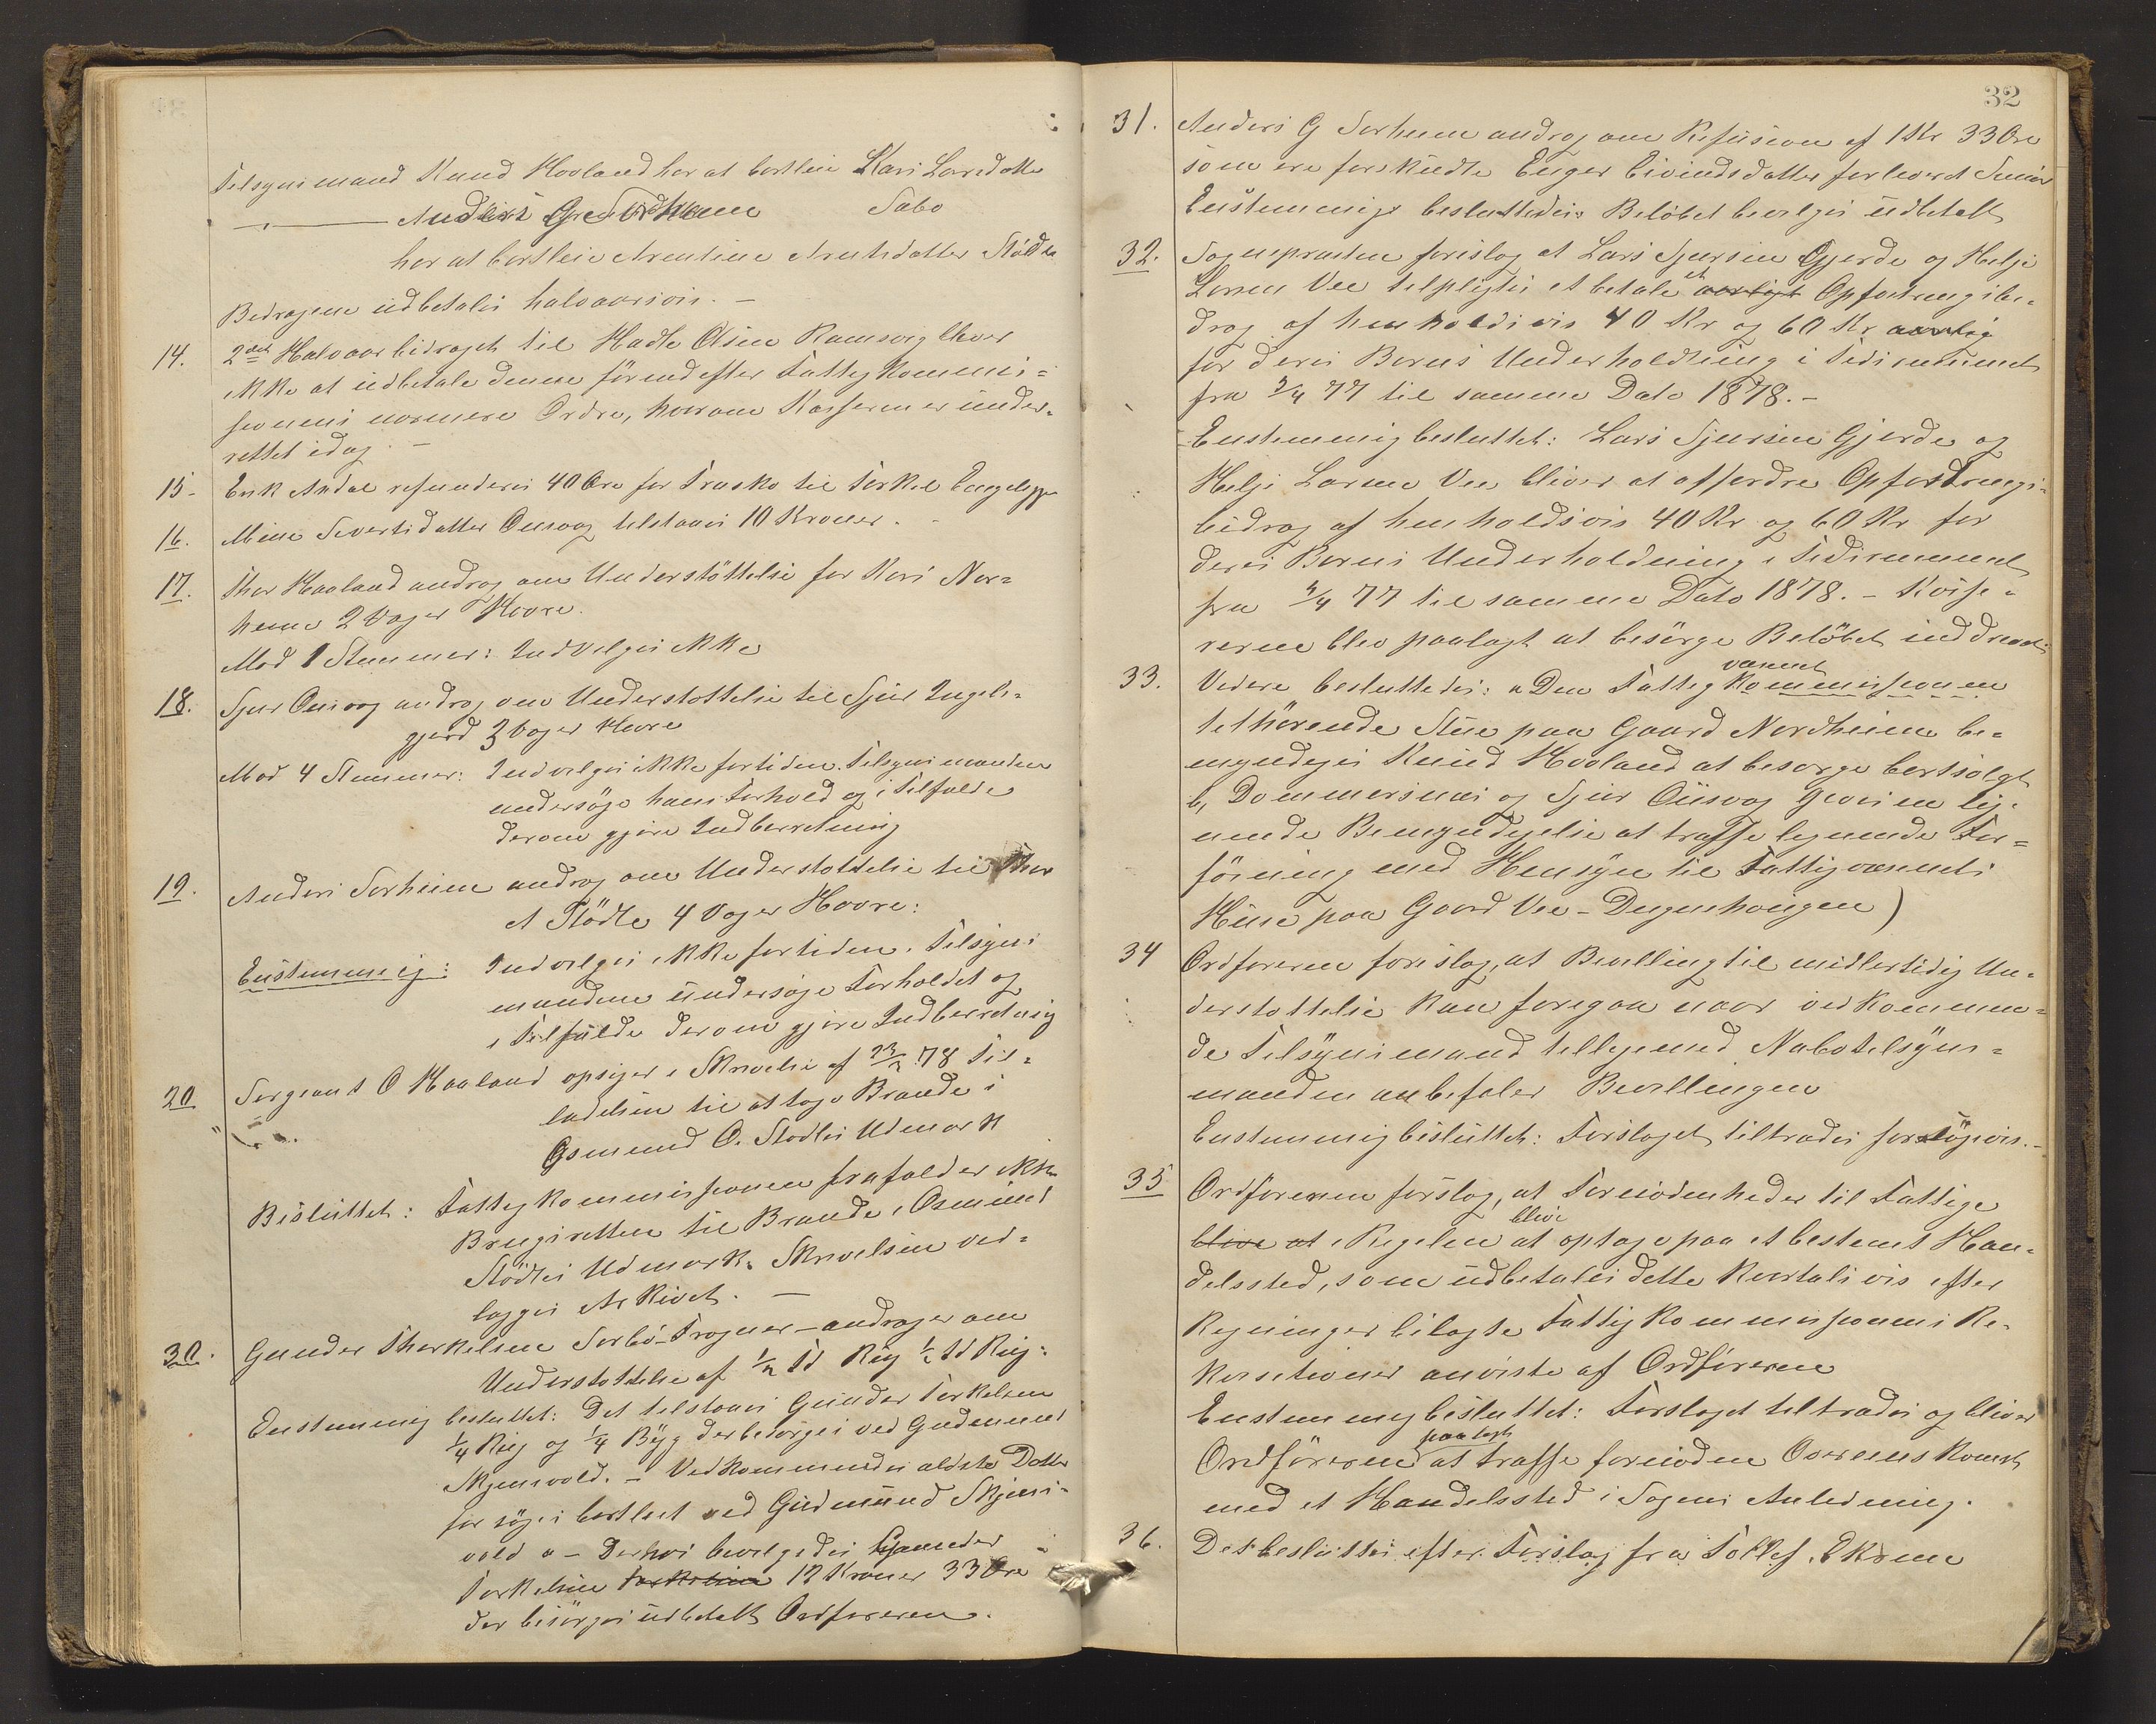 Tilsynsmand Knud Hovland har at bortleie Kari Larsdatter
—"— Anders G Sørheim Sabo
har at bortleie Arentine Arntsdatter Stødle
Bidragene udbetales halvaarsvis. –
14. 2det Halvaarsbidraget til Hadle Olsen Ramsvig bliver
ikke at udbetale denne förend efter Fattigkommis=
sionens nærmere Ordre, hvorom Kasserer er under=
rettet idag. –
15. Erik Andal refunderes 40 Øre for Træsko til Torkel
16. Mine Sivertsdatter Ølsvog tilstaaes 10 Kroner. –
17. Thor Haaland androg om Understöttelse for Kari Nor=
heim 2 Voger Havre.
Mod 1 Stemmer: Indvilges ikke
18. Sjur Ølsvog androg om Understøttelse til Sjur Ingels=
gjerd 3 Voger Havre
Mod 4 Stemmer: Indvilges ikke fortiden. Tilsynsmanden
undersöge hans Forhold og i Tilfælde
derom gjøre Indberetning
19. Anders Sørheim androg om Understøttelse til Thor
A Stödle 4 Voger Havre:
Enstemmig: Indvilges ikke fortiden. Tilsyns
manden undersøge Forholdet og
i Tilfælde derom gjøre Indberetning
20 Sergeant O Haaland opsiger i Skrivelse af 23/2 78 Til=
ladelsen til at tage Brænde i
Osmund O. Stødles Udmark
Besluttet: Fattigkommissionen frafalder ikke
Brugsretten til Brænde i Osmund
Stödles Udmark. Skrivelsen ved=
lægges Arkivet. –
30. Gunder Thorkelsen Sørbö-Trogner – androger om
Understøttelse af 1/2 Td Rug 1/2 Td Bÿg:
Enstemmig besluttet: Det tilstaaes Gunder Torkelsen
1/4 Rug og 1/4 Bÿg der besörges ved Gudmund
Skjensvold. – Vedkommendes ældste Datter
forsöges bortleiet ved Gudmund Skjens=
vold – Derhos bevilgedes Gunder
Torkelsen Torkelsen 12 Kroner 33 Øre
der besörges udbetalt Ordføreren.
32
31. Anders G Sørheim androg om Refusion af 1 Kr 33 Øre
som ere forskudte Inger Eivindsdatter for leveret
Enstemmig besluttedes: Beløbet bevilges udbetalt
32. Sognepræsten foreslog at Lars Sjursen Gjerde og Helje
Larsen Vee tilpligtes at betale et aarligt Opfostringsbi=
drag af henholdsvis 40 Kr og 60 Kr aarlig
for deres Børns Underholdning i Tidsrummet
fra 3/4 77 til samme Dato 1878. –
Enstemmig besluttet: Lars Sjursen Gjerde og
Helje Larsen Vee bliver at affordre Opfostrings=
bidrag af henholdsvis 40 Kr og 60 Kr for
deres Børns Underholdning i Tidsrummet
fra 3/4 77 til samme Dato 1878. – Kasse=
reren blev paalagt at besörge Beløbet inddrevet
33. Videre besluttedes: a Den Fattigkommissionen
væsenet
tilhörende Stue paa Gaard Nordheim be=
myndiges Knud Hovland at besørge bortsolgt
b, Dommersnes og Sjur Ølsvog gives en lig=
nende Bemyndigelse at træffe lignende For=
föining med Hensyn til Fattigvæsenets
Huse paa Gaard Vee – Dugnehaugen)
34 Ordføreren foreslog, at Bevilling til midlertidig Un=
derstøttelse kan foregaa naar vedkommen=
de Tilsÿnsmand tilligemed Nabotilsÿns=
manden anbefaler Bevillingen
Enstemmig besluttet: Forslaget tiltrædes forsögsvis. –
35 Ordføreren forslog, at Fornödenheder til Fattige
blive
blive at i Regelen at optages paa et bestemt Han=
delssted, som udbetales dette Kvartalsvis efter
Regninger bilagte Fattigkommissionens Re=
kvisitioner anviste af Ordføreren
Enstemmig besluttet: Forslaget tiltrædes og bliver
paalagt
Ordföreren at træffe fornöden Overenskomst
med et Handelssted i Sagens Anledning.
36. Det besluttes efter Forslag fra Tollef. Ekrene